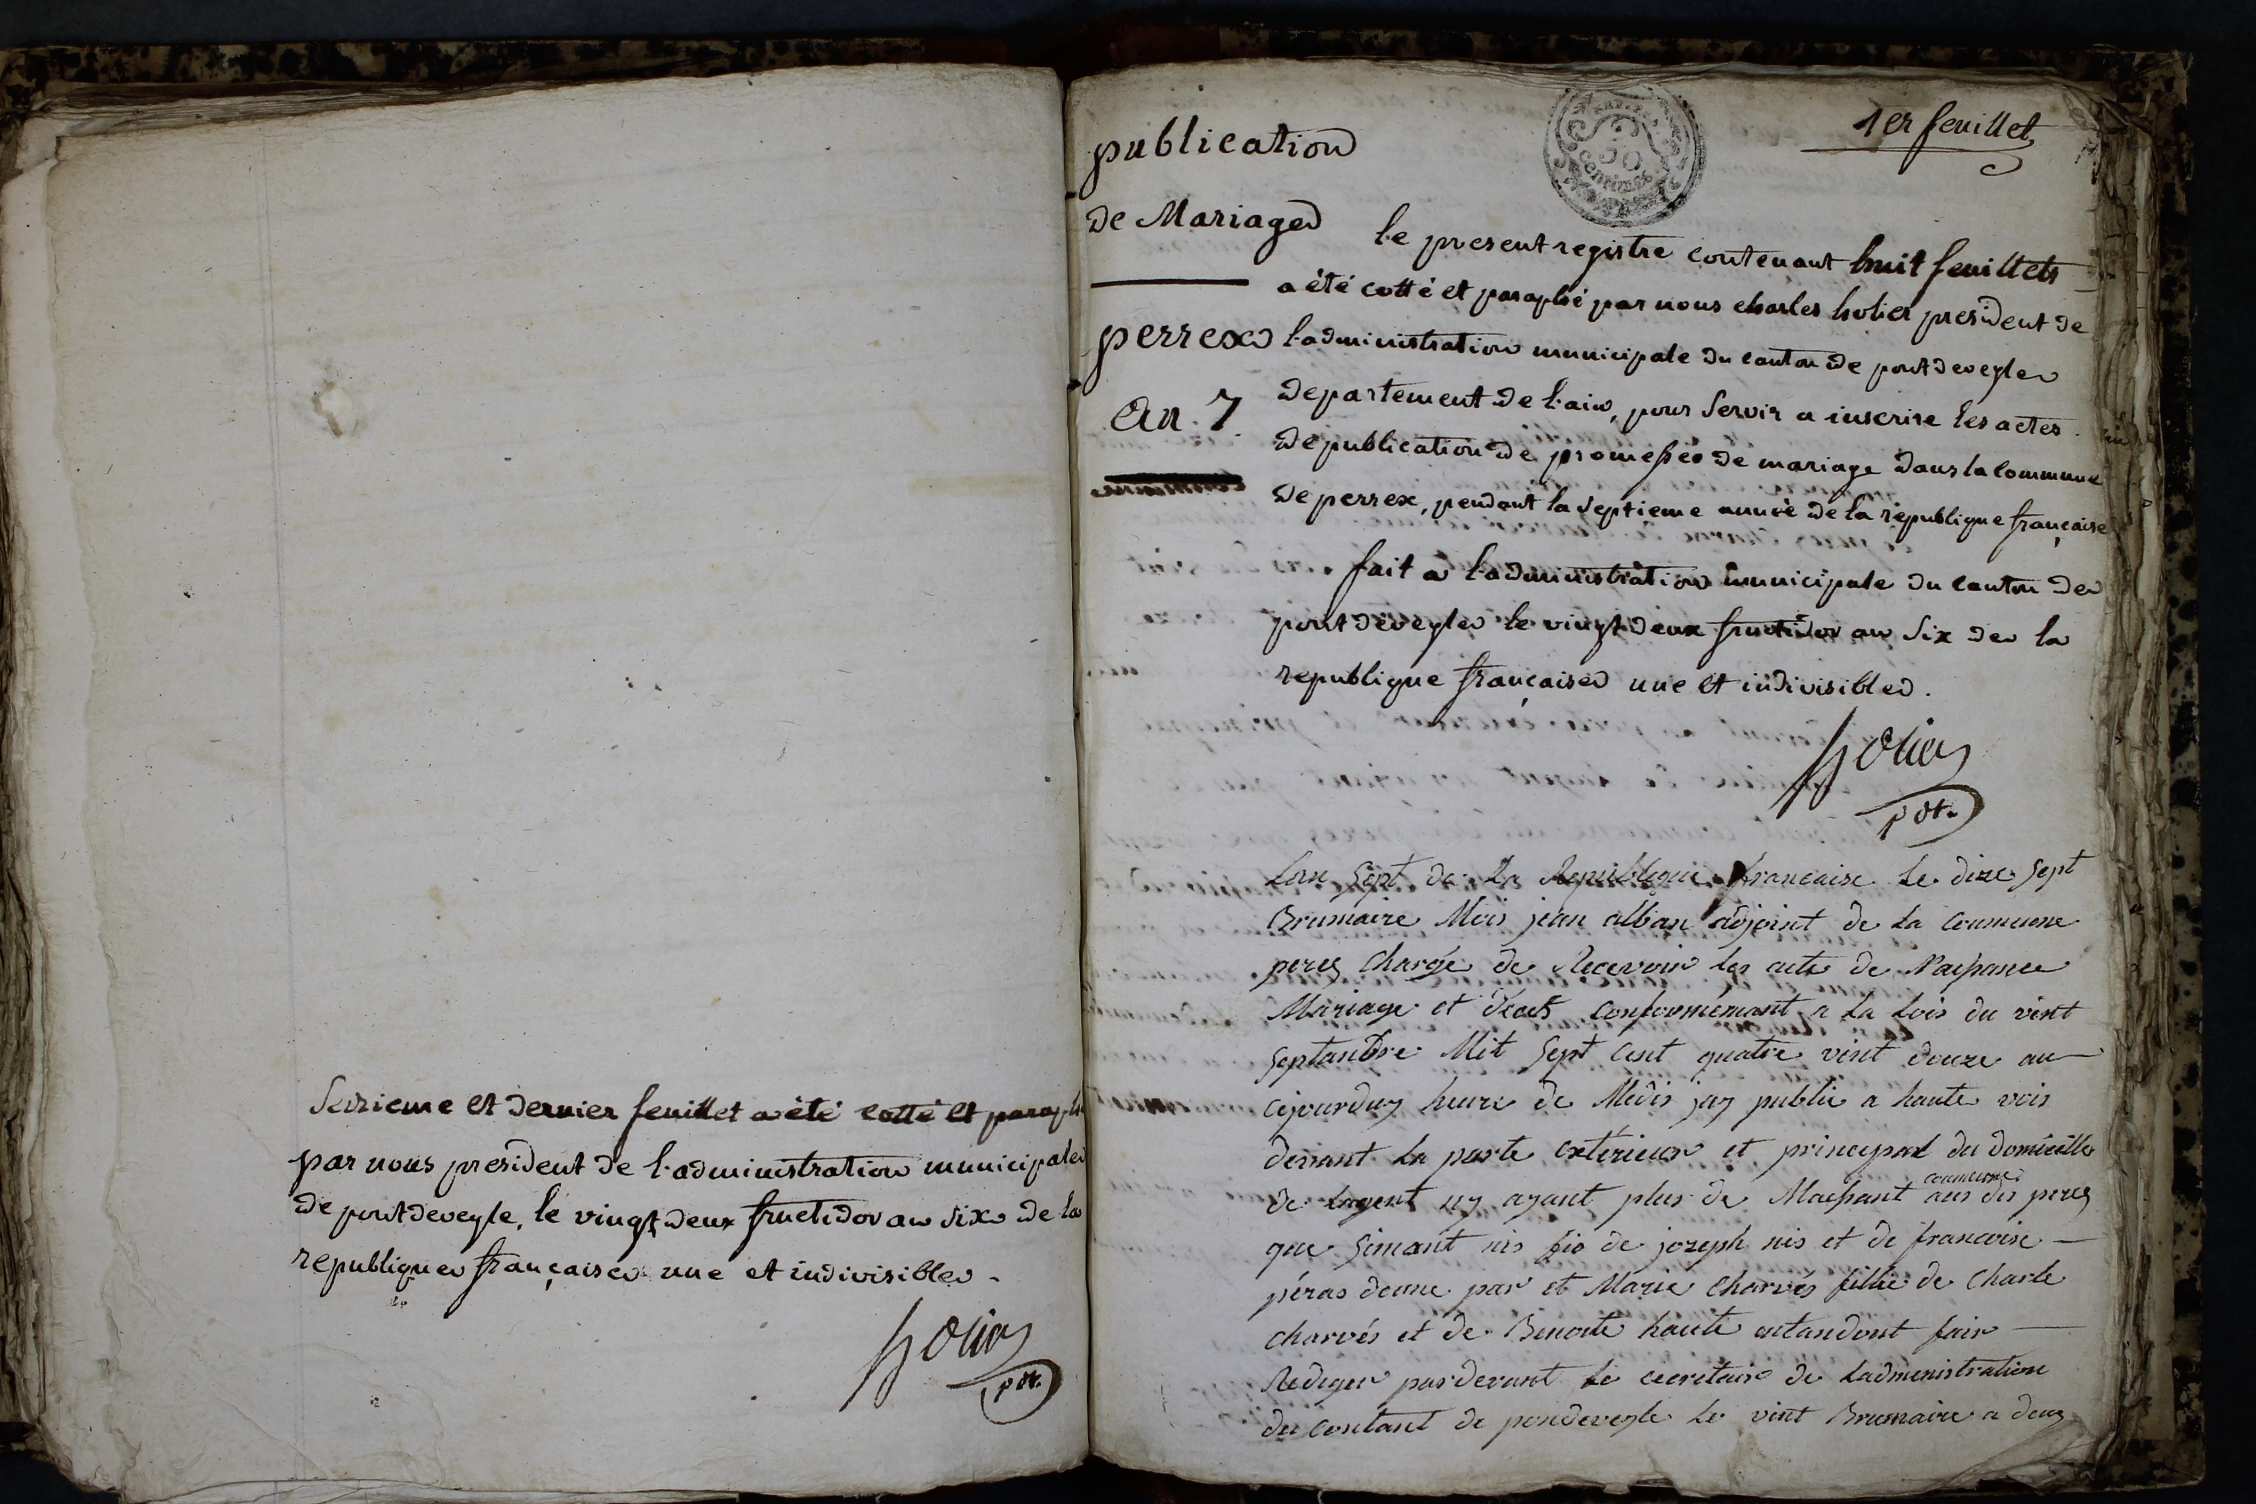 Seizieme et dernier feuillet a été cotté et paraphé
par nous president de l'administration municipale
de pontdeveyle, le vingt deux fructidor an six de la
republique française une et indivisible.
holier
pdt.
1er feuillet
publication
de Mariage
perrex
an. 7
50
centimes
le present registre contenant huit feuillets
a été cotté et paraphé par nous charles holier president de
l'administration municipale du canton de pontdeveyle
departement de l'ain, pour servir a inscrire les actes
de publication de promesses de mariage dans la commune
de perrex, pendant la septieme année de la republique française
fait a l'administration municipale du canton de
pontdeveyle le vingt deux fructidor an six de la
republique française une et indivisible.
holier
pdt.
Lan sept de la Republique francaise le dixe sept
Brumaire Mois jean alban adjoint de la coumune
perez chargé de Recevoir les acte de Naissance
Mariage et décès conformémant a la Lois du vint
septanbre Mil sept cent quatre vint douze au
cejourduy heure de Midis jay publié a haute vois
devant la porte exterieur et principal du domicille
de lagent ny ayant plus de Maissant aus dis perez
coumune
que simant nis fis de jozeph nis et de francoise
péras deune par et Marie charvés fillie de Charle
charvés et de Benoite haute antandont fair
Rediger pardevant le cecretair de Ladministration
du contant de pondeveyle le vint Brumaire a deux